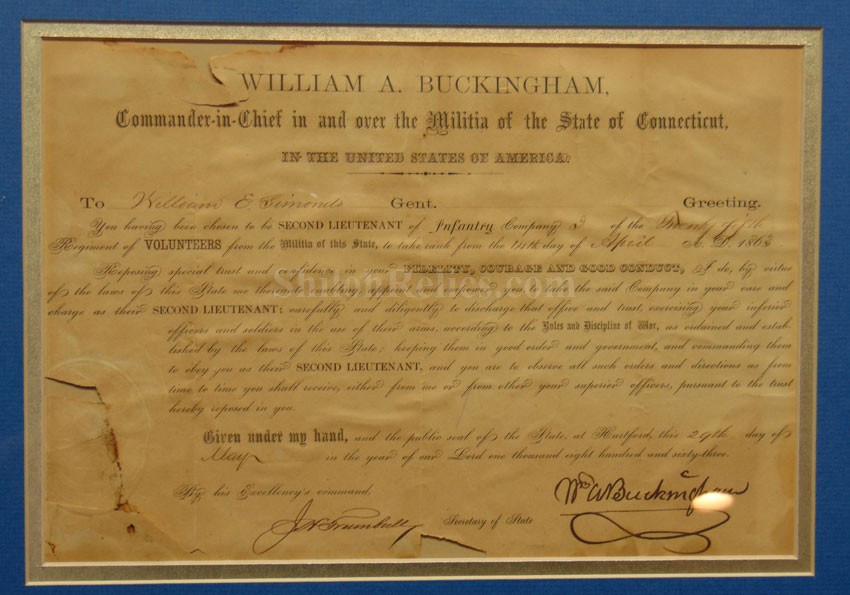 WILLIAM A. BUCKINGHAM,
Commander-in-Chief in and over the Militia of the State of Connecticut,
IN THE UNITED STATES OF AMERICA:
To William E Simonds Gent. Greeting.
You having been chosen to be SECOND LIEUTENANT of Infantry Company of the Twenty fifth
Regiment of VOLUNTEERS from the Militia of this State, to take rank from the 14th day of April A. D. 1863
Reposing special trust and confidence in your FIDELITY, COURAGE AND GOOD CONDUCT, I do, by virtue
of the laws of this State me thereunto enabling, appoint and you to take the said Company in your care and
charge as their SECOND LIEUTENANT; carefully and diligently to discharge that office and trust, exercising your inferior
officers and soldiers in the use of their arms, according to the Rules and Discipline of War, as ordained and estab-
lished by the laws of this State; keeping them in good order and government, and commanding them
to obey you as their SECOND LIEUTENANT, and you are to observe all such orders and directions as from
time to time you shall receive, either from me or from other your superior officers, pursuant to the trust
hereby reposed in you.
Given under my hand, and the public seal of the State, at Hartford, this 29th day of
May in the year of our Lord one thousand eight hundred and sixty-three.
By his Excellency's command,
Wm A Buckingham
J H Trumbull Secretary of State
ShilohRelics.com